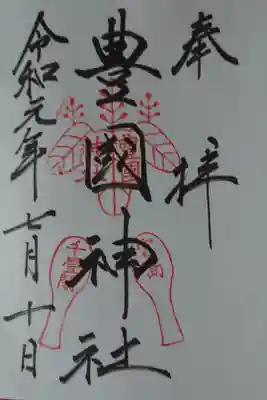 奉拝
豊國神社
令和元年七月十日
千畳閣